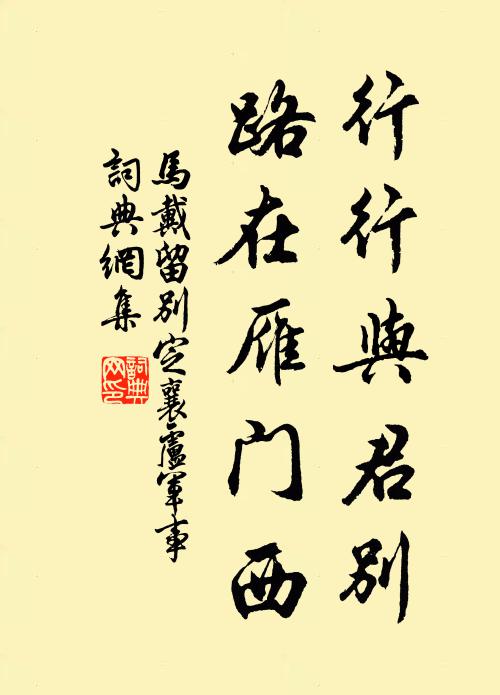 行行與君別
路在雁门西
馬戴留別定襄盧軍事
詞典網集
詞典网印